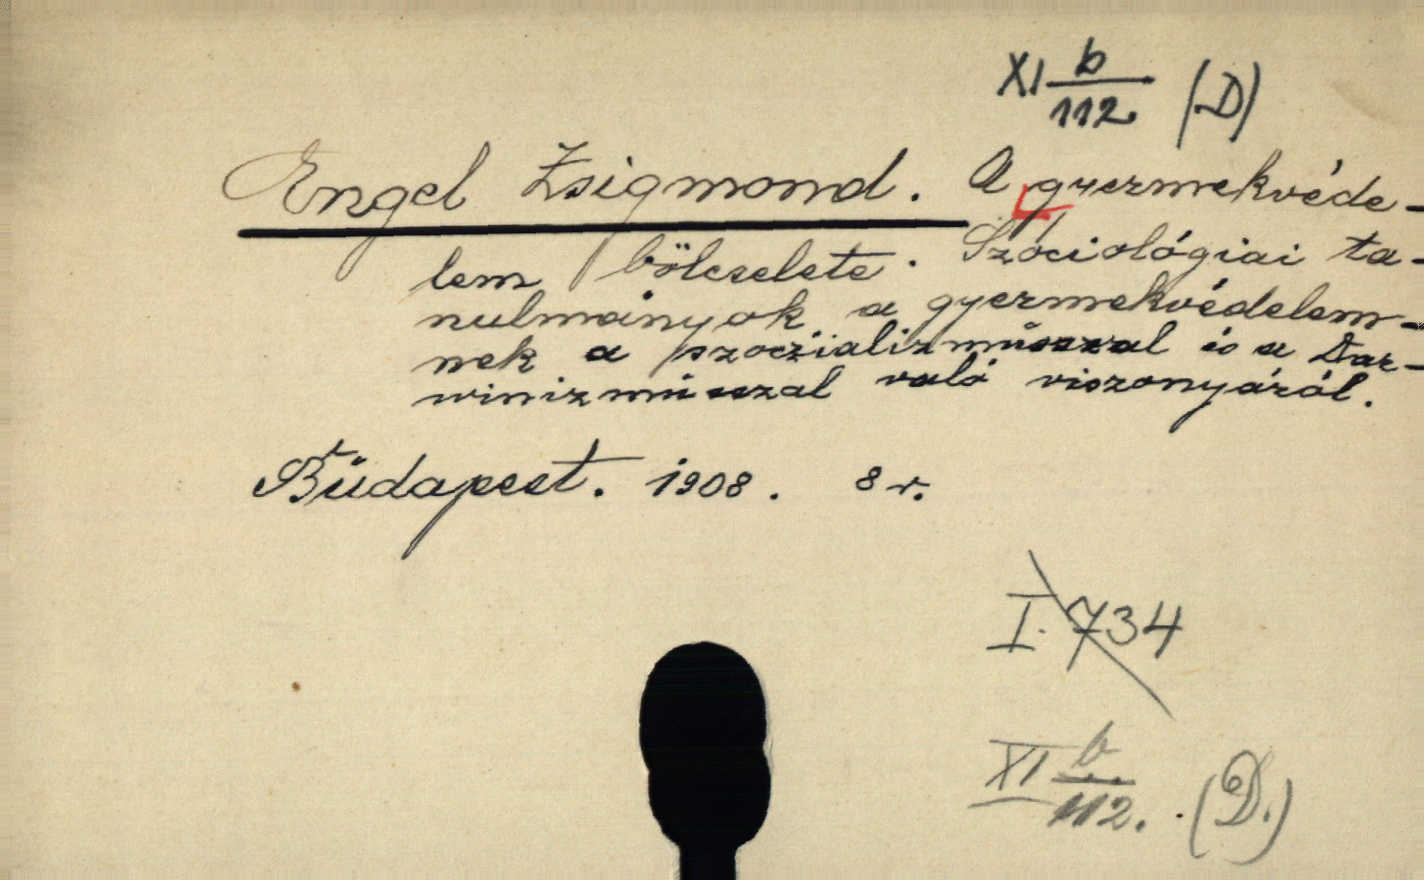 XI b/112. (D)
Engel Zsigmond. A gyermekvéde-
lem bölcselete. Szociológiai ta-
nulmányok a gyermekvédelem-
nek a szoczializmússzal és a Dar-
winizmússzal való viszonyáról.
Budapest. 1908. 8 r.
I. 734
XI b/112. (D.)